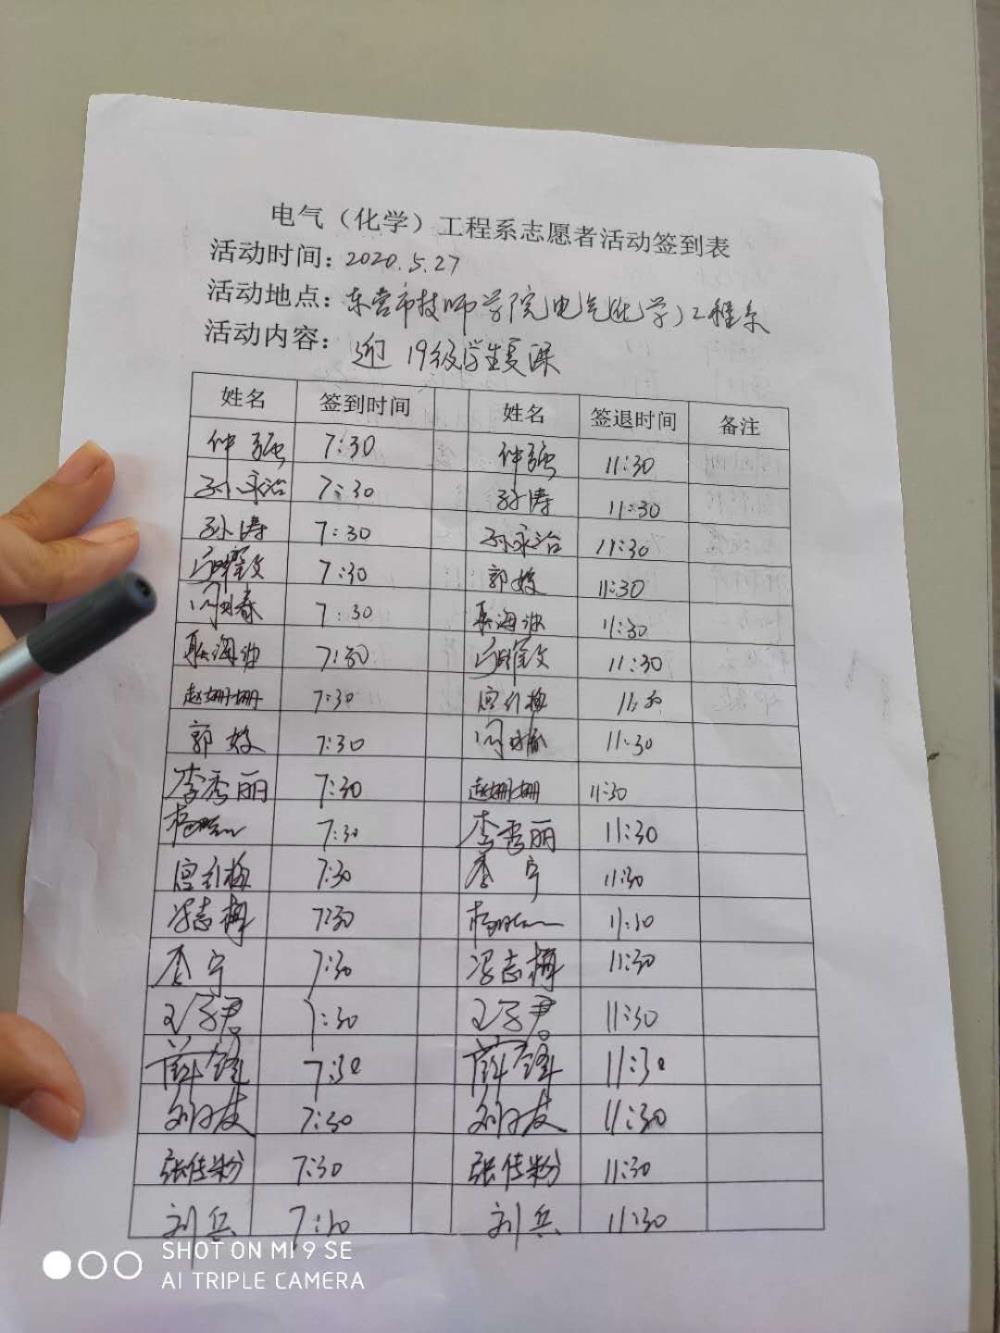 电气（化学）工程系志愿者活动签到表
活动时间：2020.5.27
活动地点：东营市技师学院电气(化学)工程系
活动内容：迎19级学生复课
姓名 签到时间 姓名 签退时间 备注
仲强 7:30 仲强 11:30
孙永治 7:30 孙涛 11:30
孙涛 7:30 孙永治 11:30
7:30 郭姣 11:30
7:30 聂海波 11:30
聂海波 7:30 11:30
赵姗姗 7:30 宫引梅 11:30
郭姣 7:30 11:30
李秀丽 7:30 赵姗姗 11:30
7:30 李秀丽 11:30
宫引梅 7:30 李宁 11:30
冯志梅 7:30 11:30
李宁 7:30 冯志梅 11:30
7:30 11:30
薛锋 7:30 薛锋 11:30
7:30 11:30
张佳粉 7:30 张佳粉 11:30
刘兵 7:30 刘兵 11:30
SHOT ON MI 9 SE
AI TRIPLE CAMERA